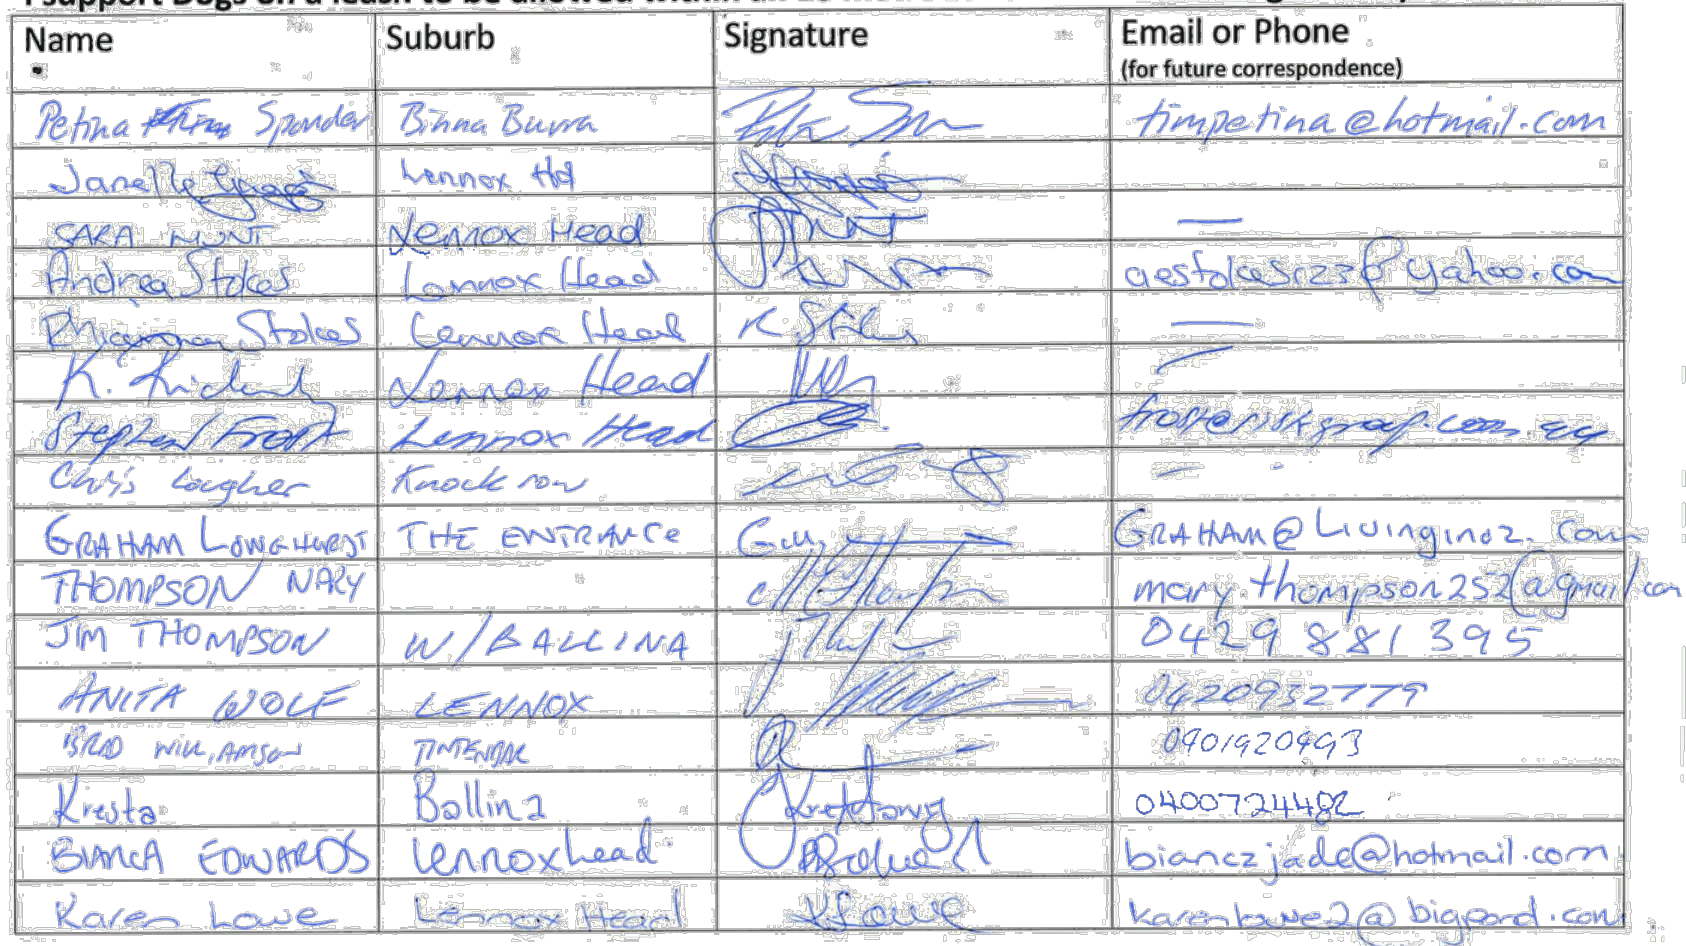 I support Dogs on a leash to be allowed within
Name Suburb Signature Email or Phone
(for future correspondence)
Petina Spender Binna Burra timpetina@hotmail.com
Janelle Lennox Hd
SARA MUNT Lennox Head —
Andrea Stokes Lennox Head aestokes123@yahoo.com
Stokes Lennox Head K Stokes —
K. Lennox Head —
Stephen Frost Lennox Head
Chris Lougher Knockrow – -
GRAHAM LONGHURST THE ENTRANCE GRAHAM@Livinginoz.com
THOMPSON MARY mary thompson252@gmail.com
JIM THOMPSON W/BALLINA 0429 881 395
ANITA WOLF LENNOX 0420932779
BRAD WILLIAMSON TINTENBAR 0401920493
Kresta Ballina 0400724482
BIANCA EDWARDS Lennoxhead biancajade@hotmail.com
Karen Lowe Lennox Head KLowe karenlowe2@bigpond.com